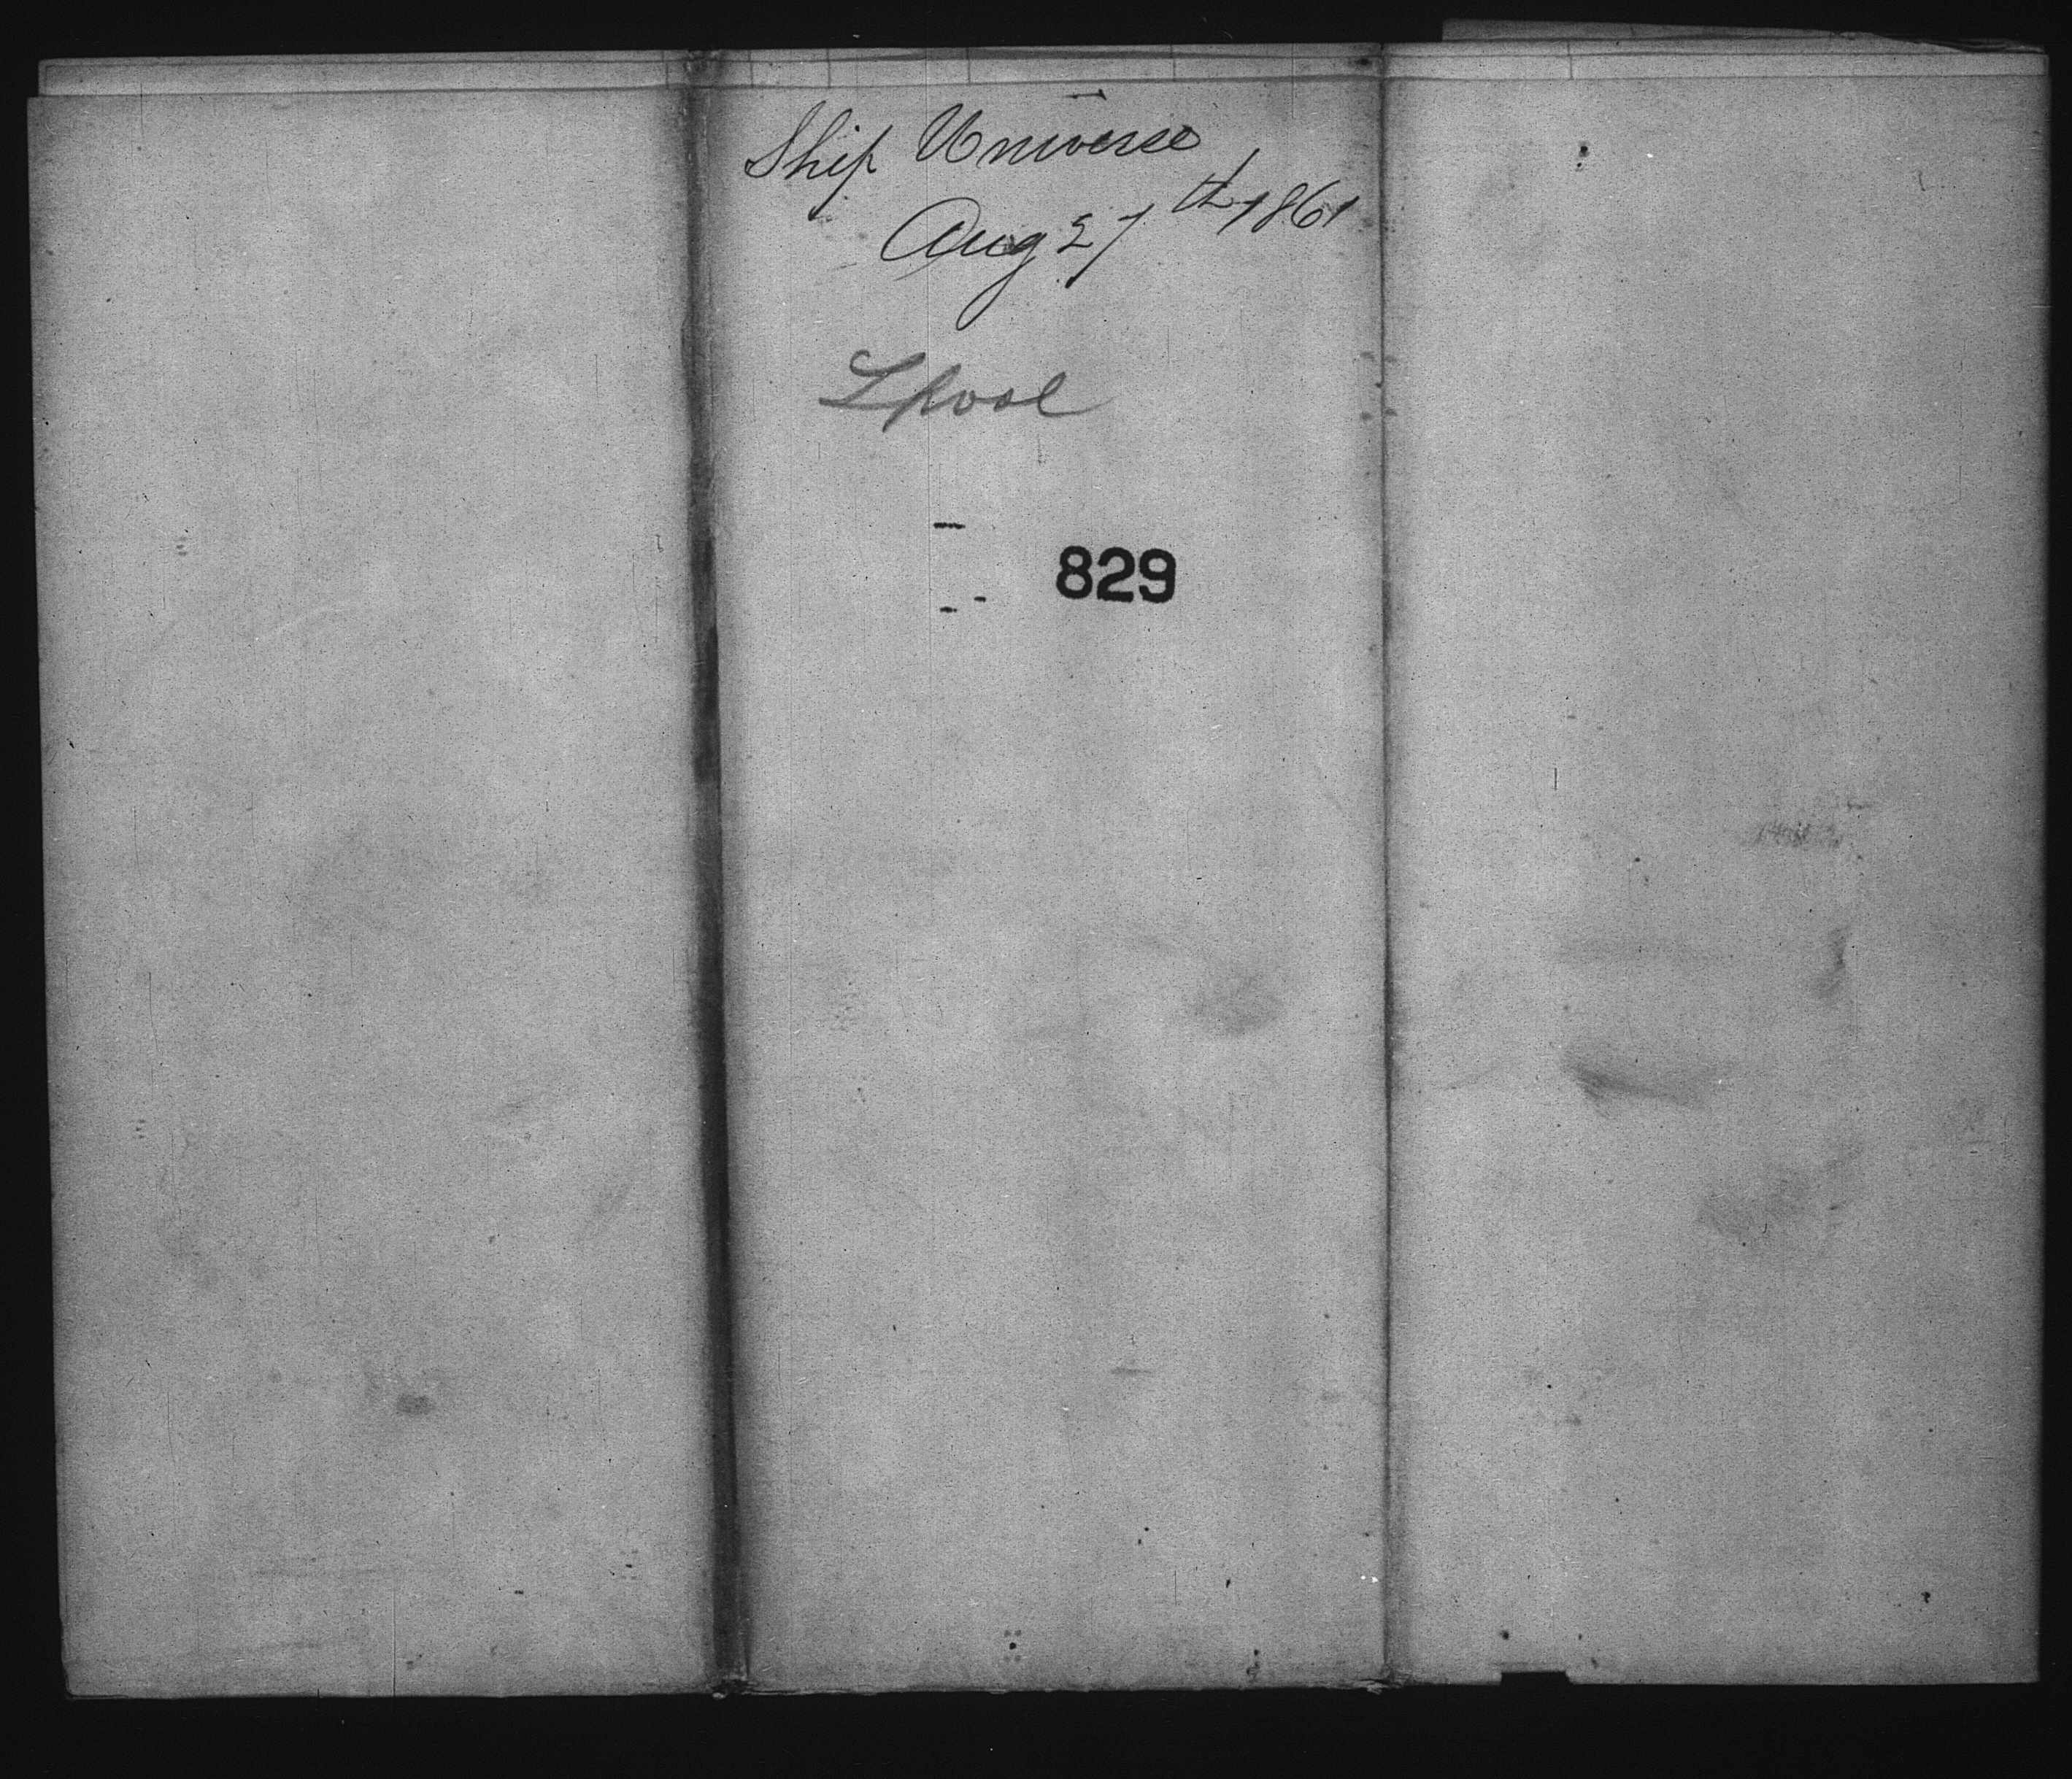 Ship Universe
Aug 27th 1861
Lpool
829